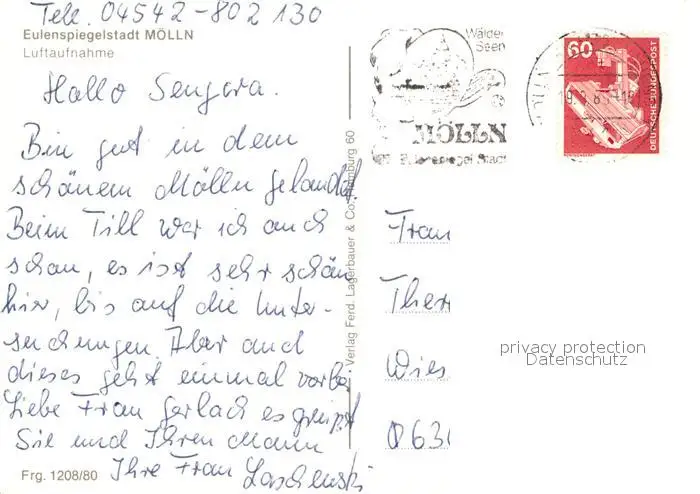 Tele. 04542-802 130
Eulenspiegelstadt MÖLLN
Luftaufnahme
Hallo Sengora.
Bin gut in dem
schönem Mölln gelandet.
Beim Till war ich auch
schon, es ist sehr schön
hier, bis auf die Unter-
suchungen. Aber auch
dieses geht einmal vorbei
Liebe Frau Gerlach es grüsst
Sie und Ihren Mann
Ihre Frau
Frg. 1208/80
Verlag Ferd. Lagerbauer & Co. Hamburg 60
Wälder
Seen
MÖLLN
Eulenspiegel Stadt
60
DEUTSCHE BUNDESPOST
Frau
Ther
Wies
privacy protection
Datenschutz